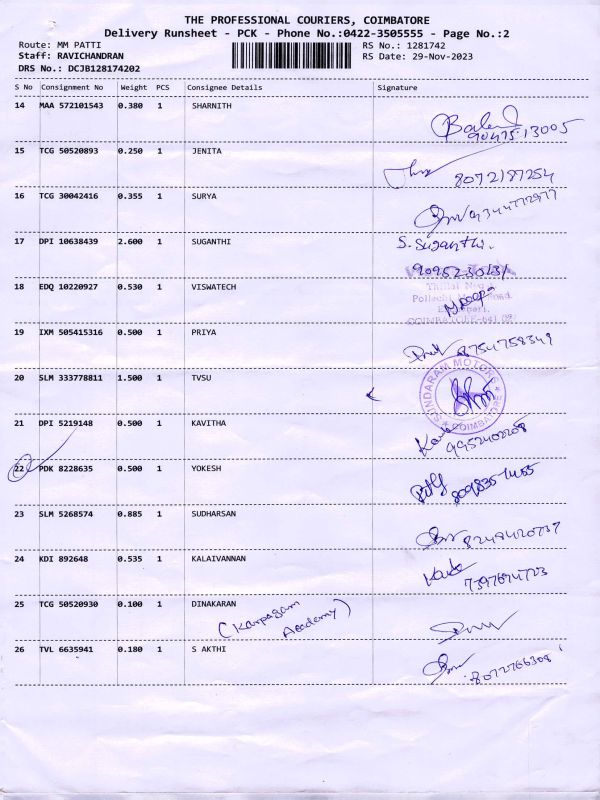 THE PROFESSIONAL COURIERS, COIMBATORE
Delivery Runsheet - PCK - Phone No.:0422-3505555 - Page No.:2
Route: MM PATTI RS No.: 1281742
Staff: RAVICHANDRAN RS Date: 29-Nov-2023
DRS No.: DCJB128174202
S No Consignment No Weight PCS Consignee Details Signature
14 MAA 572101543 0.380 1 SHARNITH
90475 13005
15 TCG 50520893 0.250 1 JENITA
8072187254
16 TCG 30042416 0.355 1 SURYA
17 DPI 10638439 2.600 1 SUGANTHI S. Suganthi.
18 EDQ 10220927 0.530 1 VISWATECH
19 IXM 505415316 0.500 1 PRIYA
8754758349
20 SLM 333778811 1.500 1 TVSU
SUNDARAM MOTORS
COIMBATORE
21 DPI 5219148 0.500 1 KAVITHA
9952402208
22 PDK 8228635 0.500 1 YOKESH
23 SLM 5268574 0.885 1 SUDHARSAN
24 KDI 892648 0.535 1 KALAIVANNAN
25 TCG 50520930 0.100 1 DINAKARAN
(Karpagam
Academy)
26 TVL 6635941 0.180 1 S AKTHI
8072766308